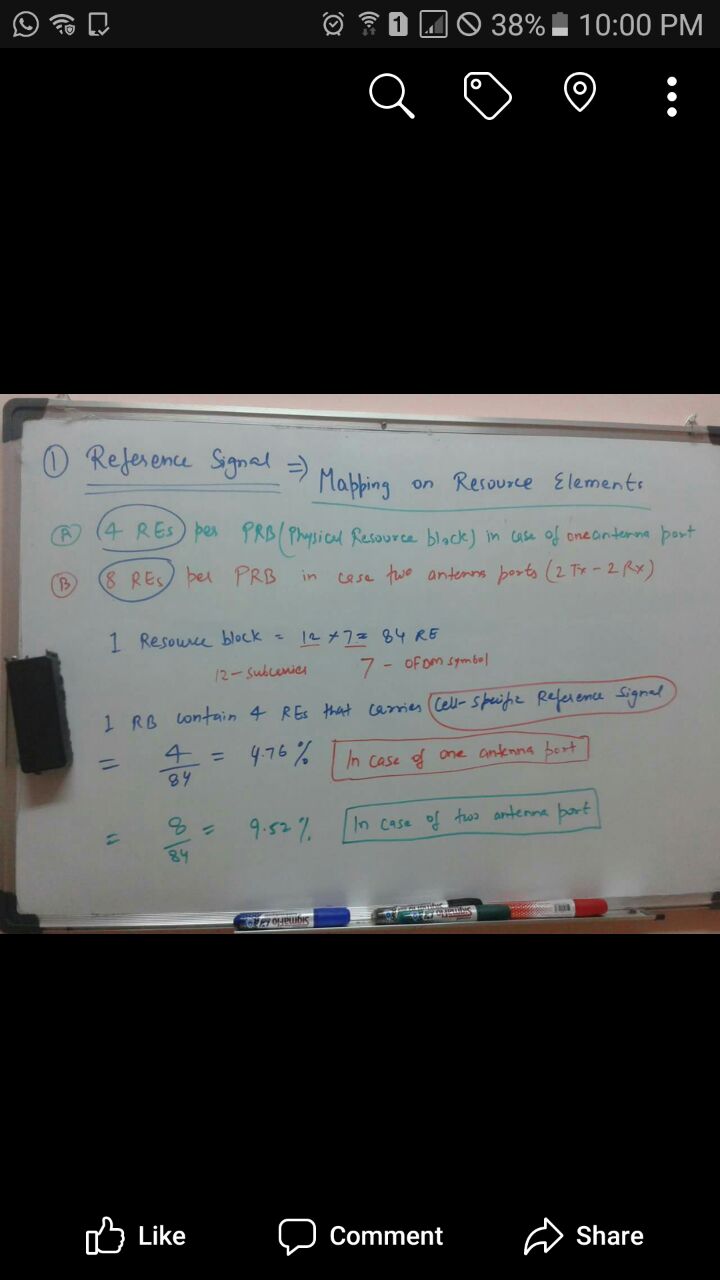 1 38% 10:00 PM
① Reference Signal ⇒ Mapping on Resource Elements
Ⓐ 4 REs per PRB (Physical Resource block) in case of one antenna port
Ⓑ 8 REs per PRB in case two antenna ports (2 Tx - 2 Rx)
1 Resource block = 12 × 7 = 84 RE
12 - Subcarrier 7 - OFDM symbol
1 RB contain 4 REs that carries Cell-Specific Reference Signal
= 4/84 = 4.76 % In case of one antenna port
= 8/84 = 9.52 % In case of two antenna port
Like Comment Share